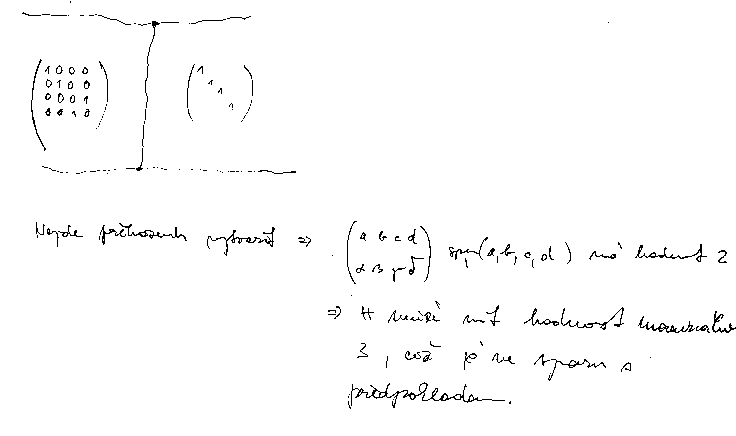 1 0 0 0
0 1 0 0
0 0 0 1
0 0 1 0
1
1
1
1
Nejde přehozením vytvořit ⇒ (a b c d
α β γ δ) (a, b, c, d) má hodnost 2
⇒ H může mít hodnost maximálně
3, což je ve sporu s
předpokladem.